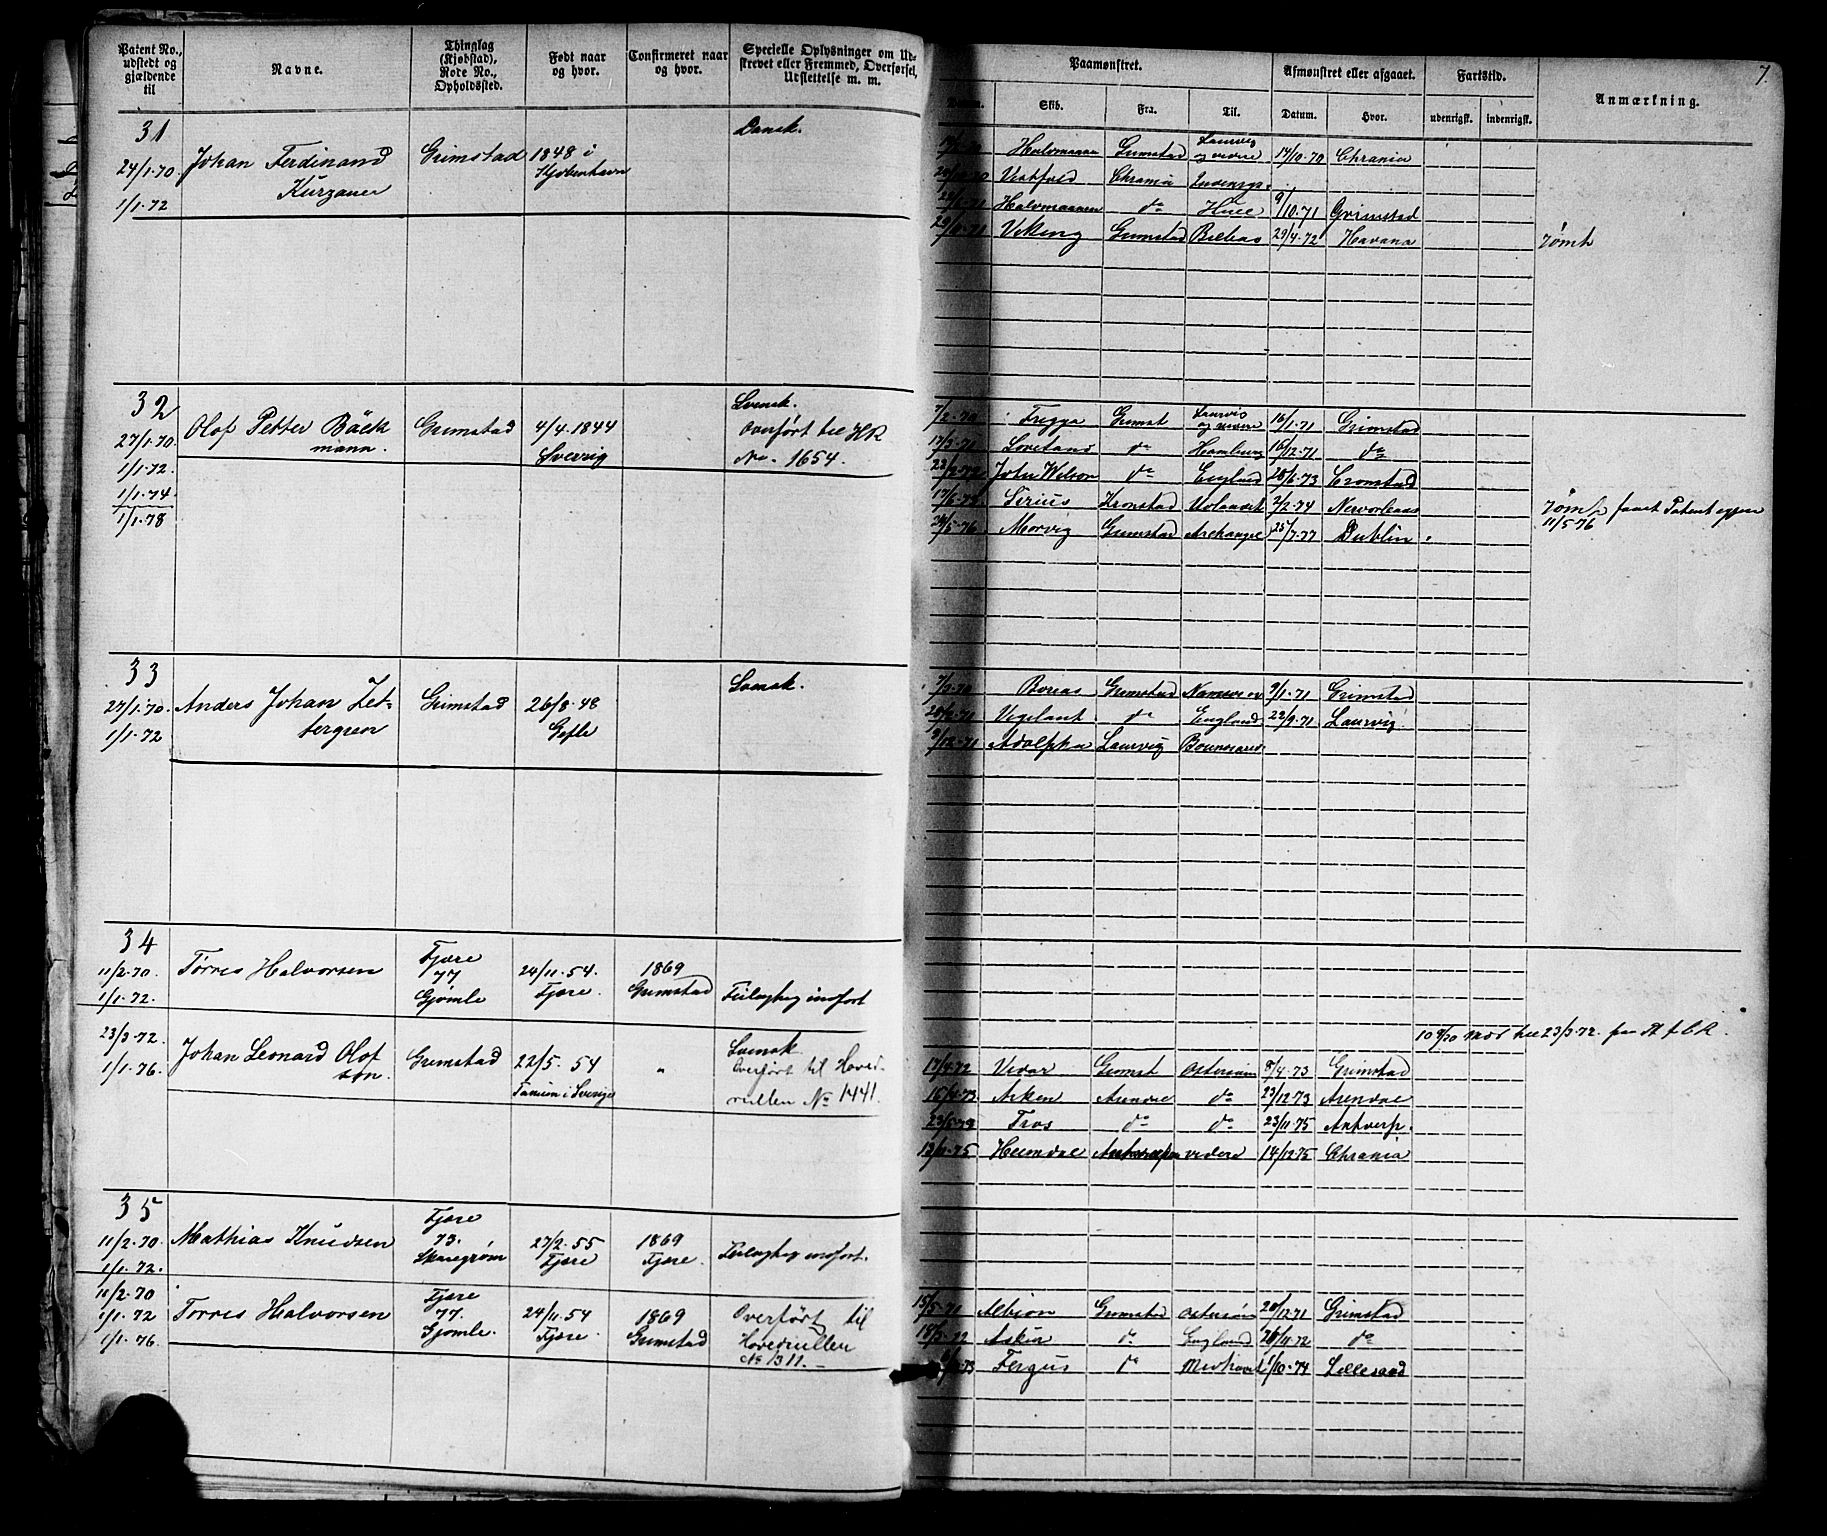 Patent No., udstedt og gjældende til
Navne.
Thinglag (Kjøbstad), Rode No., Opholdssted.
Født naar og hvor.
Confirmeret naar og hvor.
Specielle Oplysninger om Udstrevet eller Fremmed, Overførsel, Udslettelse m. m.
Paamønstret.
Afmønstret eller afgaaet.
Fartstid.
Anmærkning.
7.
Datum. Skib. Fra. Til. Datum. Hvor. udenrigsk. indenrigsk.
31
24/1.70
1/1.72
Johan Ferdinand
Kurzauer
Grimstad
1848 i
Kjøbenhavn
Dansk.
Halvmaanen Grimstad Laurvig og videre 14/10.70 Chrania
Vestfold Chrania Indenrigs.
Halvmaanen do Hull 9/10.71 Grimstad
29/11.71 Viking Grimstad 29/4.72 Havana
rømt
32
27/1.70
1/1.72.
1/1.74
1/1.78
Olof Petter Bäck
mann.
Grimstad
4/4.1844
Sverrig
Svensk.
Overført til HR
No. 1654.
7/2.70 Frigga Grimst Laurvig og videre 16/1.71 Grimstad
Loveland do Hamburg 16/12.71 do
22/2.72 John Wilson do England 28/6.73 Cronstad
Sirius Kronstad Udlandet 2/2.74 Neworleans
rømt faaet Patent igjen
11/5 76
24/5.76 Morvig Grimstad Archangel 25/7.77 Dublin
33
27/1.70.
1/1.72
Anders Johan Zet-
tergren
Grimstad
26/8.48
Gefle
Svensk.
Boreas Grimstad 9/1.71 Grimstad
Vigelant do England 22/9.71 Laurvig
9/12.71 Adolpha Laurvig
34
11/2.70.
1/1.72.
Torres Halvorsen
Fjære
77
Gjømle
24/11.54.
Fjære.
1869
Grimstad
Feilagtig indført
23/3.72.
1/1.76.
Johan Leonard Olof
son.
Grimstad
22/5. 54
Tanum i Sverige
"
Svensk
Overført til Hoved-
rullen No 1441.
23/3.72.
17/4.72 Vidar Grimst Østersøen 8/4.73 Grimstad
15/4.73 Asken Arendal do 23/12.73 Arendal
23/5.73 Fros do do 23/11.75 Antverp.
13/11.75 Heimdal Antverpen videre 14/12 75 Chrania
35
11/2.70.
1/1.72.
Mathias Knudsen
Fjære
73.
Skaregrøm
27/2.55
Fjære
1869
Fjære.
Feilagtig indført.
11/2.70
1/1.72
1/1.76.
Torres Halvorsen
Fjære
77.
Gjømle.
24/11.54
Fjære.
1869
Grimstad
Overført til
Hovedrullen
No 1311.
15/5.71 Albion Grimstad Østersøen 20/12.71 Grimstad
18/3.72 Asker do England 26/11.72 do
Fergus do 1/10.74 Lillesand